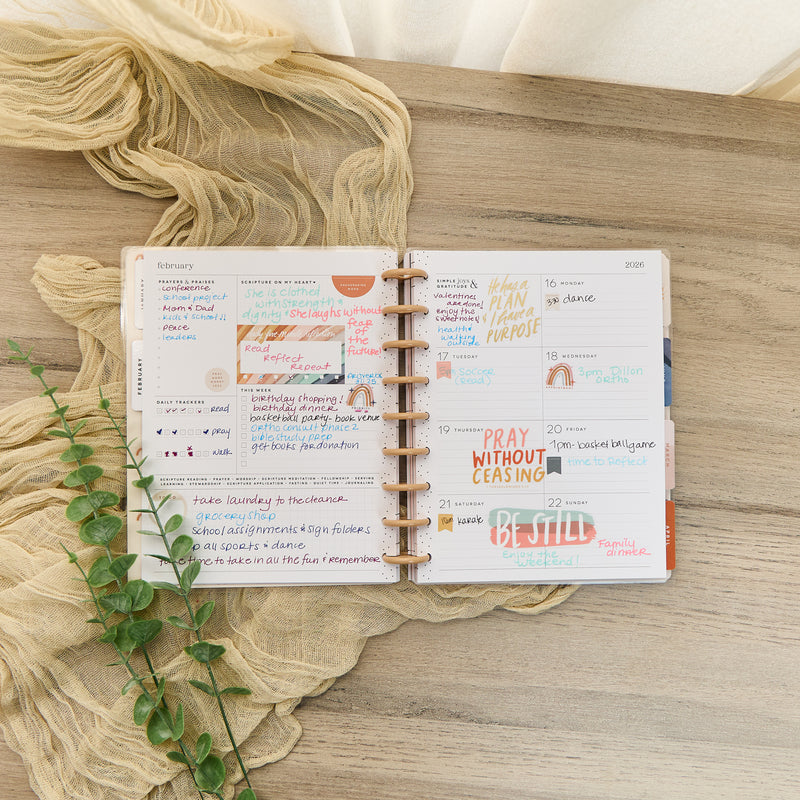 february
PRAYERS & PRAISES
conference
school project
Mom & Dad
kids & school!!
peace
leaders
SCRIPTURE ON MY HEART
She is clothed
with strength &
dignity & She laughs without
fear
of the
future!
PROVERBS
31:25
Read
Reflect
Repeat
DAILY TRACKERS
read
pray
walk
THIS WEEK
birthday shopping!
birthday dinner
basketball party - book venue
ortho consult phase 2
bible study prep
get books for donation
SCRIPTURE READING • PRAYER • WORSHIP • SCRIPTURE MEDITATION • FELLOWSHIP • SERVING
LEARNING • STEWARDSHIP • SCRIPTURE APPLICATION • FASTING • QUIET TIME • JOURNALING
take laundry to the cleaner
grocery shop
school assignments & sign folders
all sports & dance
time to take in all the fun & remember
JANUARY
FEBRUARY
2026
SIMPLE Joys &
GRATITUDE
valentines
are done!
enjoy the
sweet notes!
health &
walking
outside
He has a
PLAN
& I have a
PURPOSE
16 MONDAY
dance
17 TUESDAY
Soccer
(read)
18 WEDNESDAY
3pm Dillon
ortho
19 THURSDAY
PRAY
WITHOUT
CEASING
20 FRIDAY
1pm - basketball game
time to Reflect
21 SATURDAY
karate
BE STILL
Enjoy the
weekend!
22 SUNDAY
Family
dinner
MARCH
APRIL